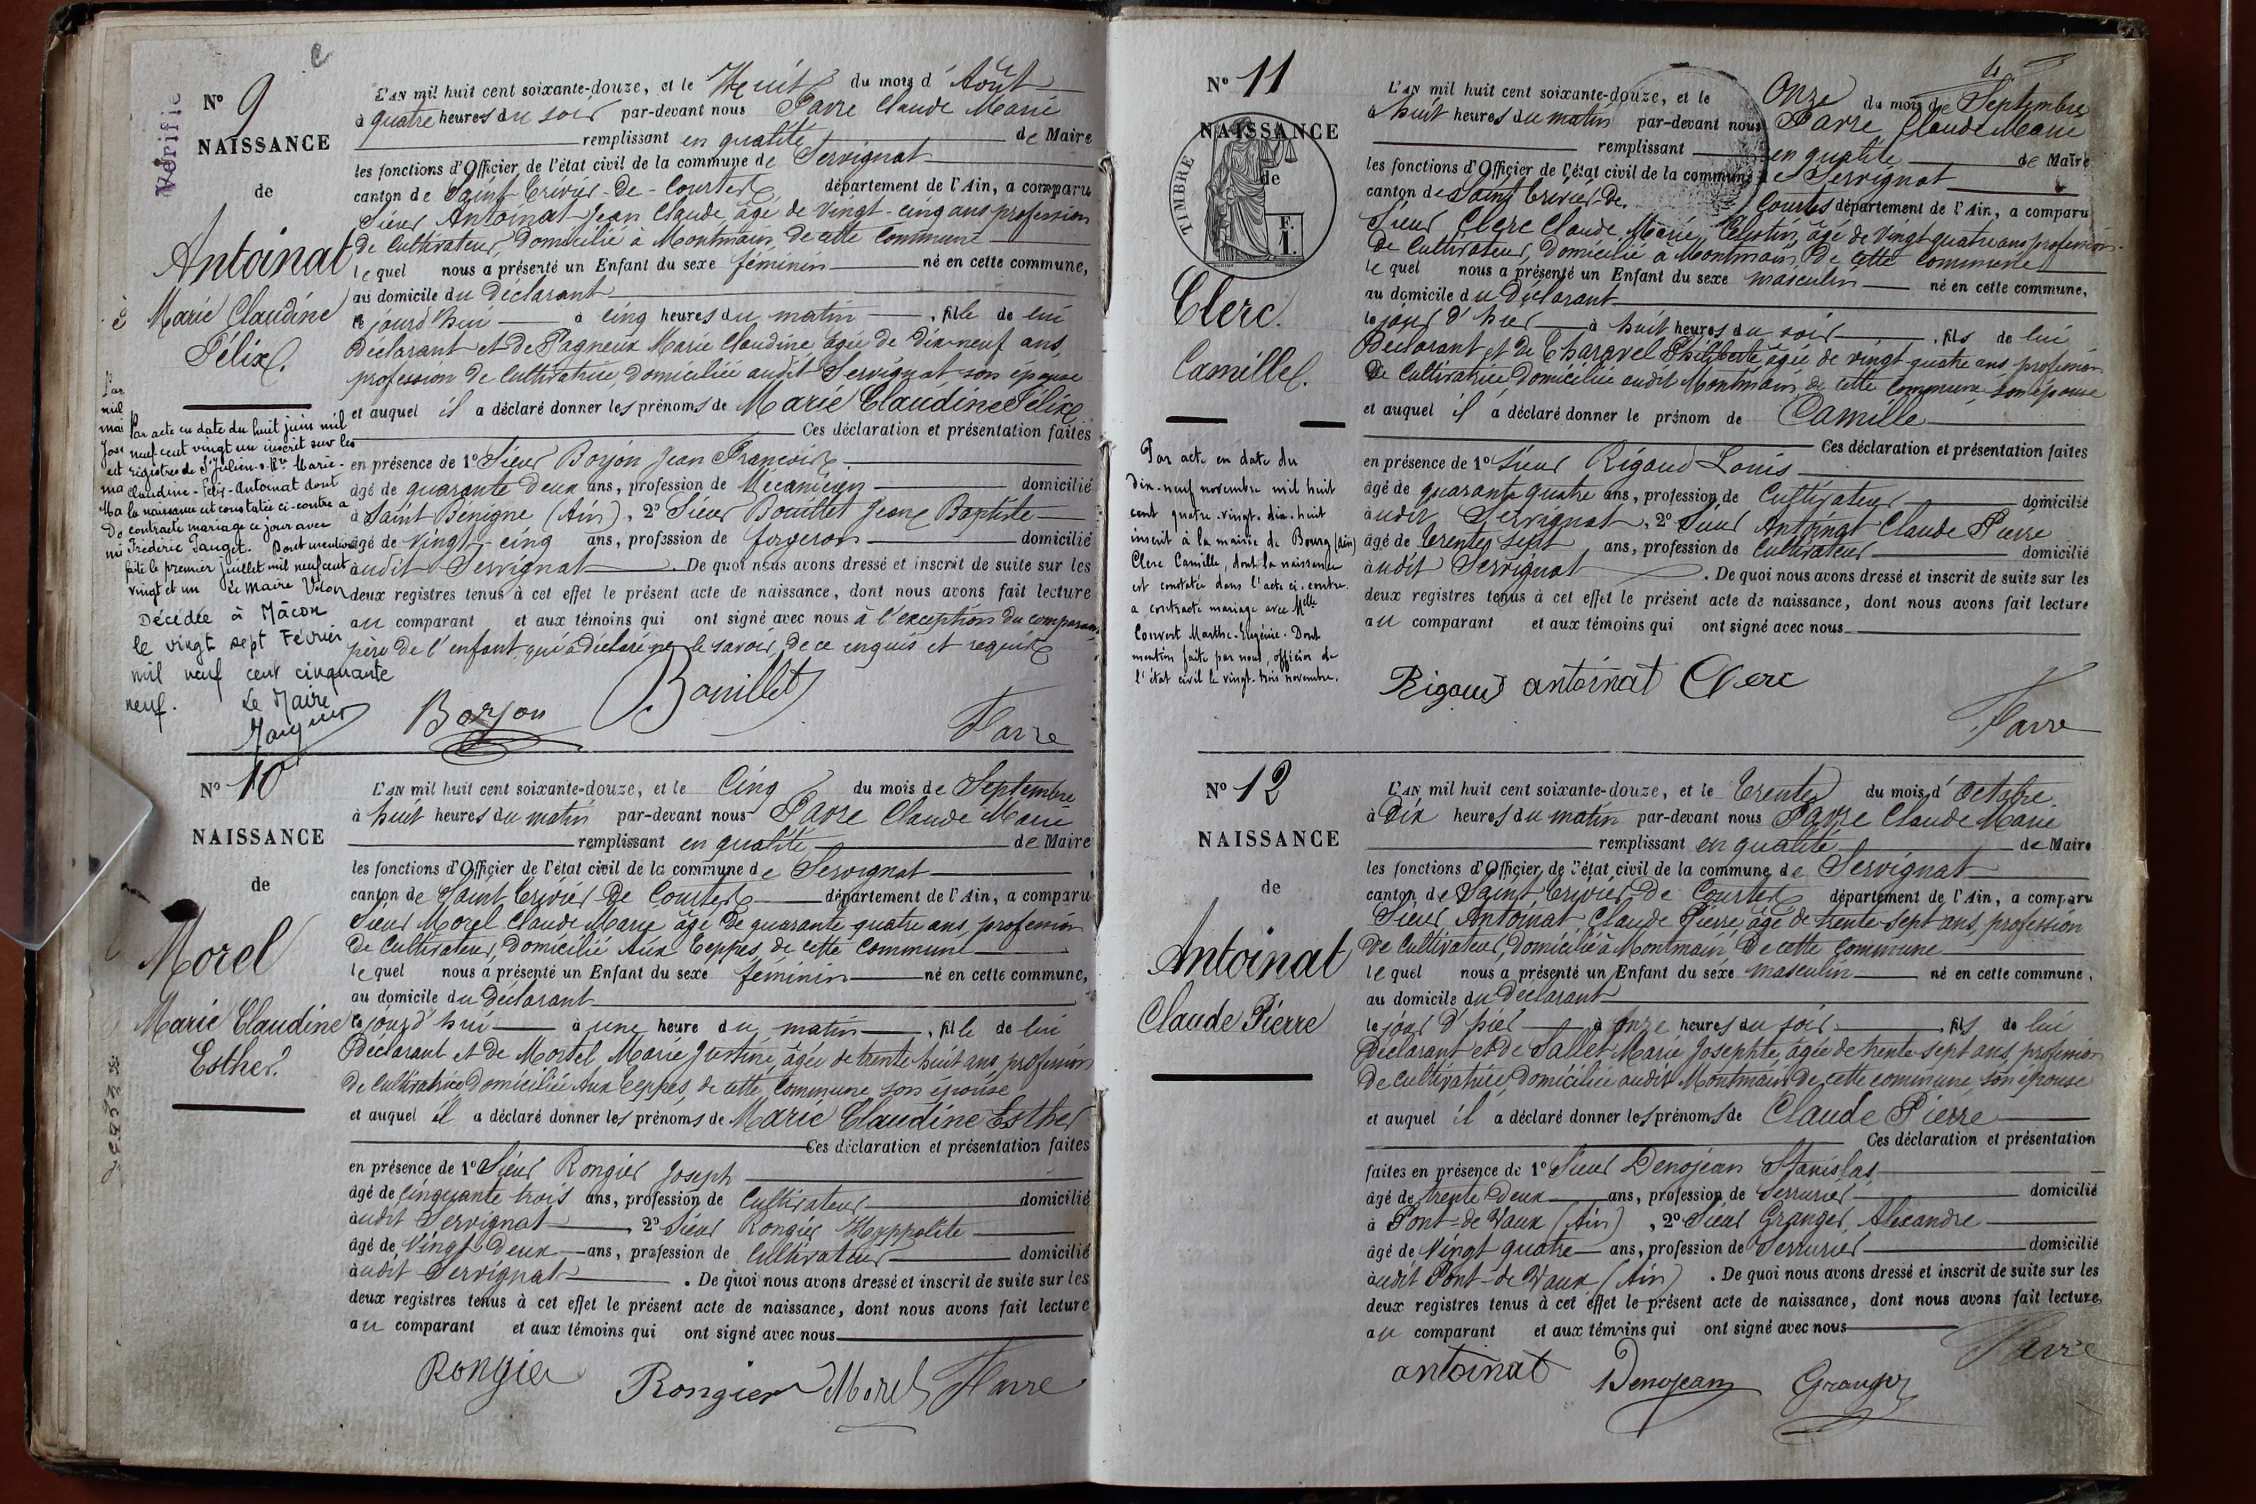 Vérifié
N° 9
NAISSANCE
de
Antoinat
Marie Claudine
Félix.
Par acte en date du huit juin mil
neuf cent vingt un inscrit sur les
registres de St Julien-s-Rze Marie-
Claudine-Félix-Antoinat dont
la naissance est constatée ci-contre a
contracté mariage ce jour avec
Frédéric Pauget. Dont mention
faite le premier juillet mil neuf cent
vingt et un Le Maire
Décédée à Mâcon
le vingt sept Février
mil neuf cent cinquante
neuf. Le Maire
L'AN mil huit cent soixante-douze, et le Huit du mois d'Août
à quatre heures du soir par-devant nous Favre Claude Marie
remplissant en qualité de Maire
les fonctions d'Officier de l'état civil de la commune de Servignat
canton de Saint Trivier-de-Courtes département de l'Ain, a comparu
Sieur Antoinat Jean Claude, âgé de Vingt-cinq ans profession
de Cultivateur, domicilié à Montmain, de cette Commune
lequel nous a présenté un Enfant du sexe féminin né en cette commune,
au domicile du Déclarant
ce jourd'hui à cinq heures du matin, fille de lui
Déclarant et de Pagneux Marie Claudine âgée de Dix-neuf ans,
profession de Cultivatrice, domiciliée audit Servignat son épouse
et auquel il a déclaré donner les prénoms de Marie Claudine Félix
Ces déclaration et présentation faites
en présence de 1° Sieur Borjon Jean François
âgé de quarante deux ans, profession de Mécanicien domicilié
à Saint Benigne (Ain), 2° Sieur Bouillet Jean Baptiste
âgé de Vingt-cinq ans, profession de forgeron domicilié
audit Servignat. De quoi nous avons dressé et inscrit de suite sur les
deux registres tenus à cet effet le présent acte de naissance, dont nous avons fait lecture
au comparant et aux témoins qui ont signé avec nous à l'exception du comparant
père de l'enfant, qui a déclaré ne le savoir, de ce enquis et requis
Borjon Bouillet Favre
N° 10
NAISSANCE
de
Morel
Marie Claudine
Esther.
L'AN mil huit cent soixante-douze, et le Cinq du mois de Septembre
à huit heures du matin par-devant nous Favre Claude Marie
remplissant en qualité de Maire
les fonctions d'Officier de l'état civil de la commune de Servignat
canton de Saint Trivier De Courtes département de l'Ain, a comparu
Sieur Morel Claude Marie âgé De quarante quatre ans, profession
De Cultivateur, domicilié Aux Teppes, de cette Commune
lequel nous a présenté un Enfant du sexe féminin né en cette commune,
au domicile du Déclarant
ce jourd'hui à une heure du matin, fille de lui
Déclarant et de Mortel Marie Justine, âgée de trente huit ans, profession
De Cultivatrice domiciliée Aux Teppes, de cette Commune son épouse
et auquel il a déclaré donner les prénoms de Marie Claudine Esther
Ces déclaration et présentation faites
en présence de 1° Sieur Rongier Joseph
âgé de Cinquante trois ans, profession de Cultivateur domicilié
audit Servignat, 2° Sieur Rongier Hyppolite
âgé de Vingt Deux ans, profession de Cultivateur domicilié
audit Servignat. De quoi nous avons dressé et inscrit de suite sur les
deux registres tenus à cet effet le présent acte de naissance, dont nous avons fait lecture
au comparant et aux témoins qui ont signé avec nous
Rongier Rongier Morel Favre
N° 11
NAISSANCE
de
TIMBRE
Clerc.
Camille.
Par acte en date du
dix-neuf novembre mil huit
cent quatre-vingt-dix-huit
inscrit à la mairie de Bourg (Ain)
Clerc Camille, dont la naissance
est constatée dans l'acte ci-contre
a contracté mariage avec Melle
Convert Marthe-Eugénie. Dont
mention faite par nous, officier de
l'état civil le vingt-trois novembre.
L'AN mil huit cent soixante-douze, et le Onze du mois de Septembre
à huit heures du matin par-devant nous Favre Claude Marie
remplissant en qualité de Maire
les fonctions d'Officier de l'état civil de la commune de Servignat
canton de Saint Trivier De Courtes département de l'Ain, a comparu
Sieur Clerc Claude Marie Célestin, âgé de Vingt quatre ans profession
De Cultivateur, domicilié à Montmain, De cette Commune
lequel nous a présenté un Enfant du sexe masculin né en cette commune,
au domicile du Déclarant
le jour d'hier à huit heures du soir, fils de lui
Déclarant et de Charavel Philiberte âgée de vingt quatre ans profession
De Cultivatrice Domiciliée audit Montmain de cette Commune son épouse
et auquel il a déclaré donner le prénom de Camille
Ces déclaration et présentation faites
en présence de 1° Sieur Rigaud Louis
âgé de quarante quatre ans, profession de Cultivateur domicilié
audit Servignat, 2° Sieur Antoinat Claude Pierre
âgé de Trente Sept ans, profession de Cultivateur domicilié
audit Servignat. De quoi nous avons dressé et inscrit de suite sur les
deux registres tenus à cet effet le présent acte de naissance, dont nous avons fait lecture
au comparant et aux témoins qui ont signé avec nous
Rigaud antoinat Clerc
Favre
N° 12
NAISSANCE
de
Antoinat
Claude Pierre
L'AN mil huit cent soixante-douze, et le Trente du mois d'Octobre
à Dix heures du matin par-devant nous Favre Claude Marie
remplissant en qualité de Maire
les fonctions d'Officier de l'état civil de la commune de Servignat
canton de Saint Trivier De Courtes département de l'Ain, a comparu
Sieur Antoinat Claude Pierre âgé de trente-sept ans, profession
de Cultivateur, Domicilié à Montmain De cette Commune
lequel nous a présenté un Enfant du sexe masculin né en cette commune,
au domicile du Déclarant
le jour D'hier à onze heures du soir, fils de lui
Déclarant et de Sallet Marie Josephte, âgée de trente-sept ans, profession
De Cultivatrice, Domiciliée audit Montmain de cette commune, son épouse
et auquel il a déclaré donner les prénoms de Claude Pierre
Ces déclaration et présentation
faites en présence de 1° Sieur Denojean Stanislas
âgé de trente Deux ans, profession de Serrurier domicilié
à Pont-de Vaux (Ain), 2° Sieur Granger Alexandre
âgé de Vingt quatre ans, profession de Serrurier domicilié
audit Pont-de Vaux (Ain). De quoi nous avons dressé et inscrit de suite sur les
deux registres tenus à cet effet le présent acte de naissance, dont nous avons fait lecture
au comparant et aux témoins qui ont signé avec nous
antoinat Denojean Granger Favre